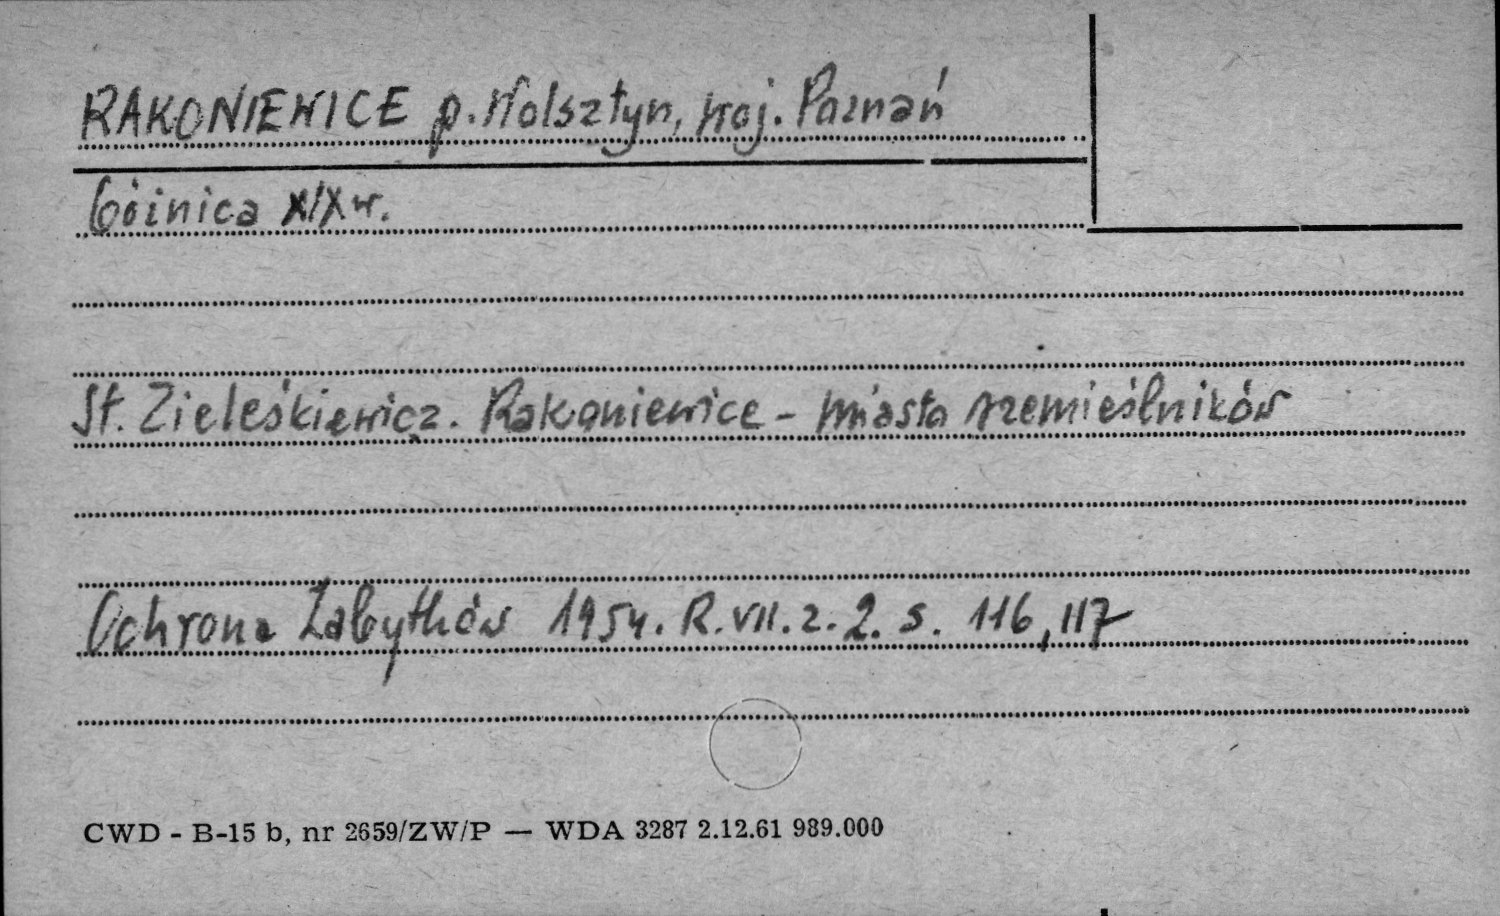 RAKONIEWICE p. Wolsztyn, woj. Poznań
Bóżnica XIX w.
St. Zieleśkiewicz. Rakoniewice - miasto rzemieślników
Ochrona Zabytków 1954. R. VII. z. 2. s. 116, 117
CWD - B-15 b, nr 2659/ZW/P — WDA 3287 2.12.61 989.000